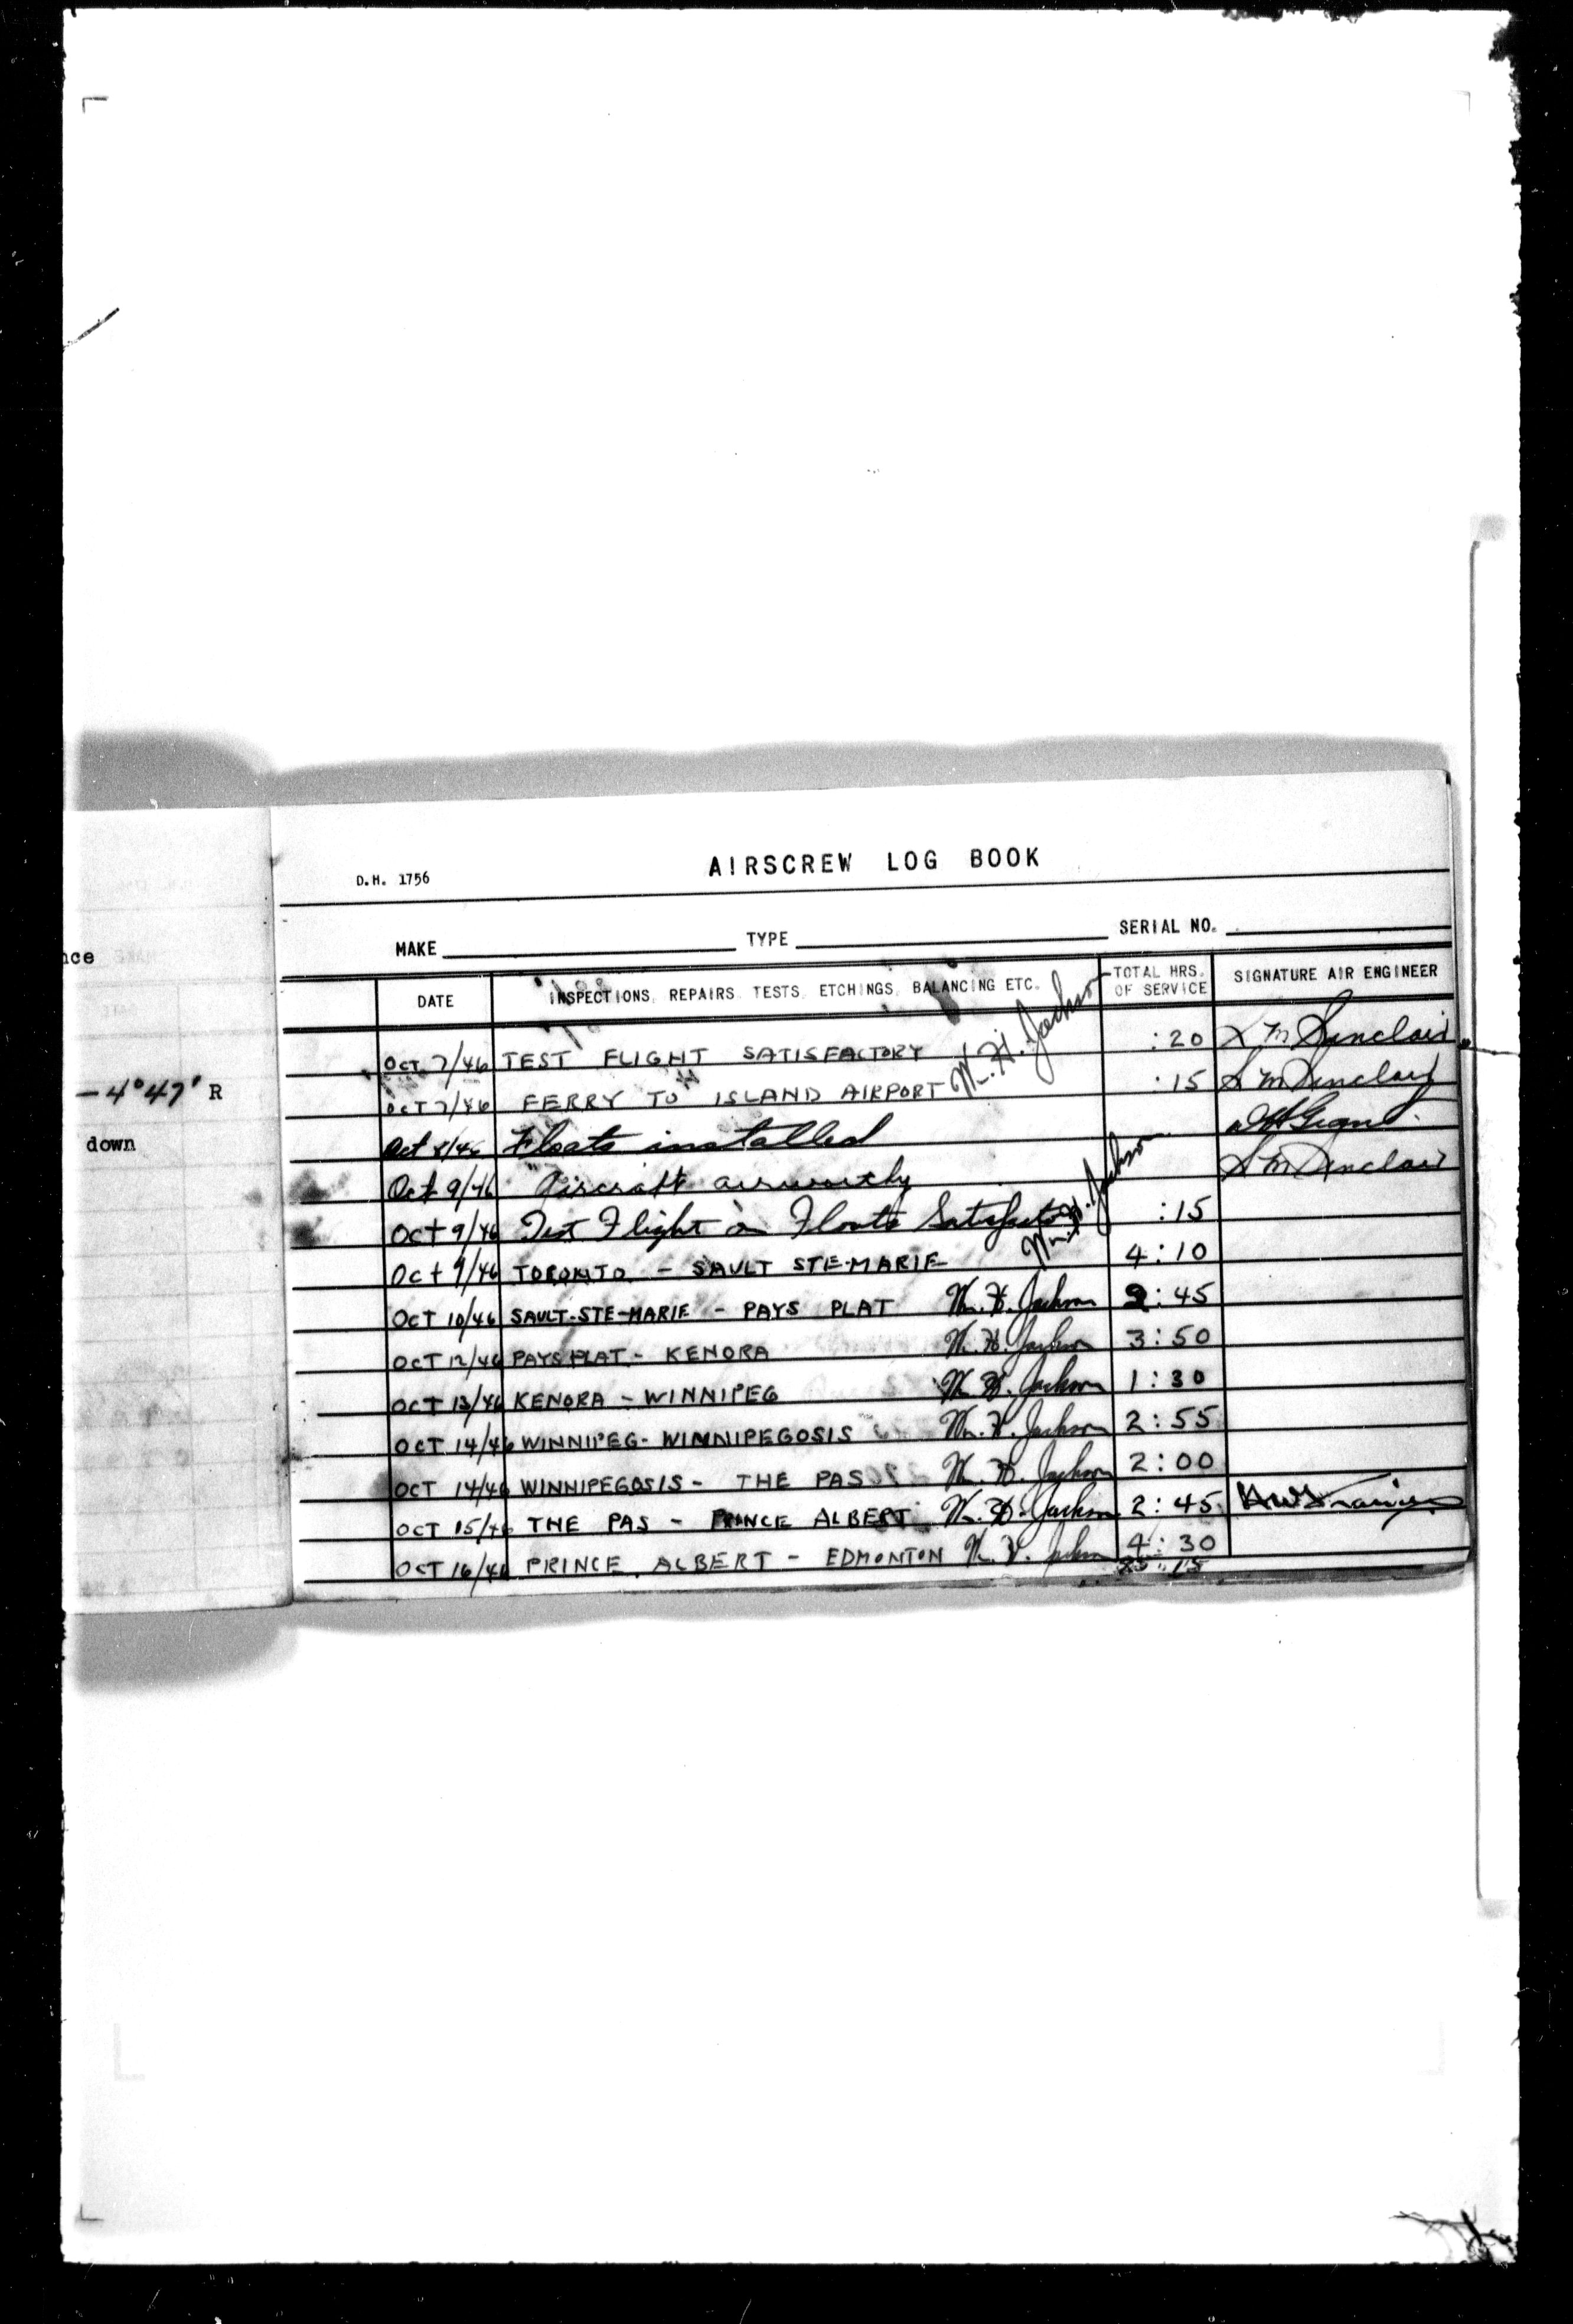 D.H. 1756
AIRSCREW LOG BOOK
nce
MAKE TYPE SERIAL NO.
DATE INSPECTIONS, REPAIRS, TESTS, ETCHINGS, BALANCING ETC. TOTAL HRS. OF SERVICE SIGNATURE AIR ENGINEER
OCT 7/46 TEST FLIGHT SATISFACTORY :20 S M Sinclair
— 4°47' R
OCT 7/46 FERRY TO ISLAND AIRPORT W. H. Jackson :15 S M Sinclair
down
Oct 8/46 Floats installed
Oct 9/46 Aircraft airworthy S M Sinclair
Oct 9/46 Test Flight on Floats Satisfactory Wm. H. Jackson :15
Oct 9/46 TORONTO - SAULT STE-MARIE 4:10
OCT 10/46 SAULT-STE-MARIE - PAYS PLAT Wm. H. Jackson 2:45
OCT 12/46 PAYS PLAT - KENORA W. H. Jackson 3:50
OCT 13/46 KENORA - WINNIPEG W. H. Jackson 1:30
OCT 14/46 WINNIPEG - WINNIPEGOSIS Wm. H. Jackson 2:55
OCT 14/46 WINNIPEGOSIS - THE PAS W. H. Jackson 2:00
OCT 15/46 THE PAS - PRINCE ALBERT W. H. Jackson 2:45
OCT 16/46 PRINCE ALBERT - EDMONTON W. H. Jackson 4:30
25:15